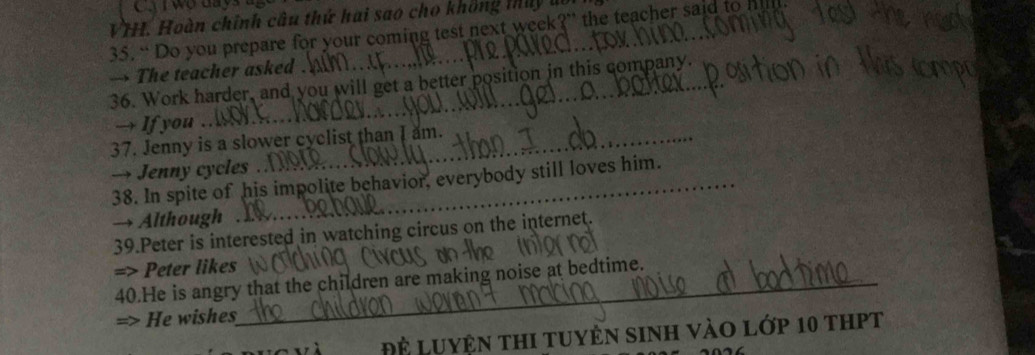 VIII. Hoàn chỉnh câu thứ hai sao cho không thay
35. “ Do you prepare for your coming test next week?” the teacher said to him.
→ The teacher asked him if he prepared for his coming test the next
36. Work harder, and you will get a better position in this company.
→ If you work harder, you will get a better position in this company
37. Jenny is a slower cyclist than I am.
→ Jenny cycles more slowly than I do
38. In spite of his impolite behavior, everybody still loves him.
→ Although he behave
39.Peter is interested in watching circus on the internet.
=> Peter likes watching circus on the internet
40.He is angry that the children are making noise at bedtime.
=> He wishes the children weren't making noise at bedtime
ĐỀ LUYỆN THI TUYỂN SINH VÀO LỚP 10 THPT